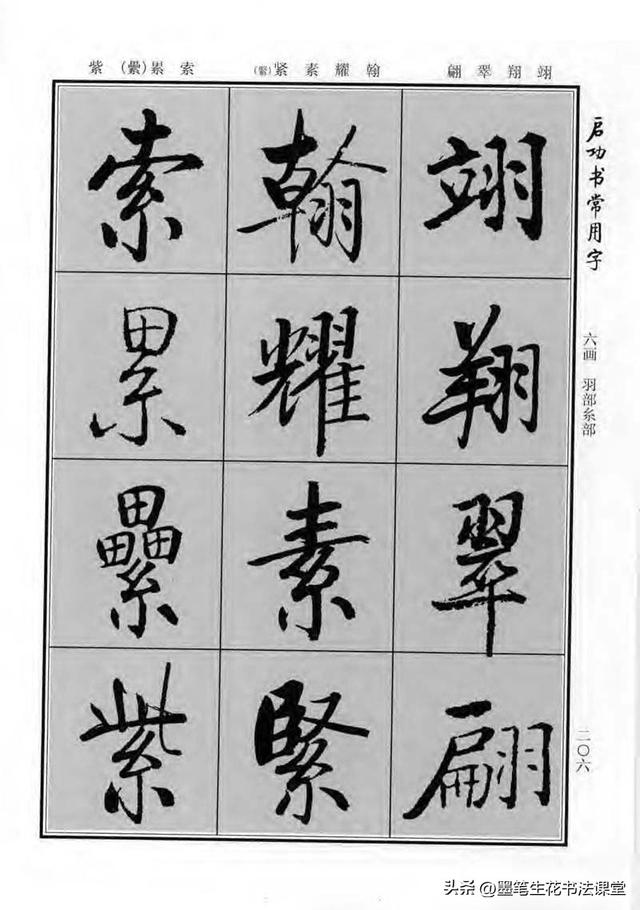 启功书常用字
六画 羽部糸部
二〇六
翊翔翠翩
翰耀素紧(緊)
索累(纍)紫
翊翔翠翩
翰耀素緊
索累纍紫
头条 @墨笔生花书法课堂